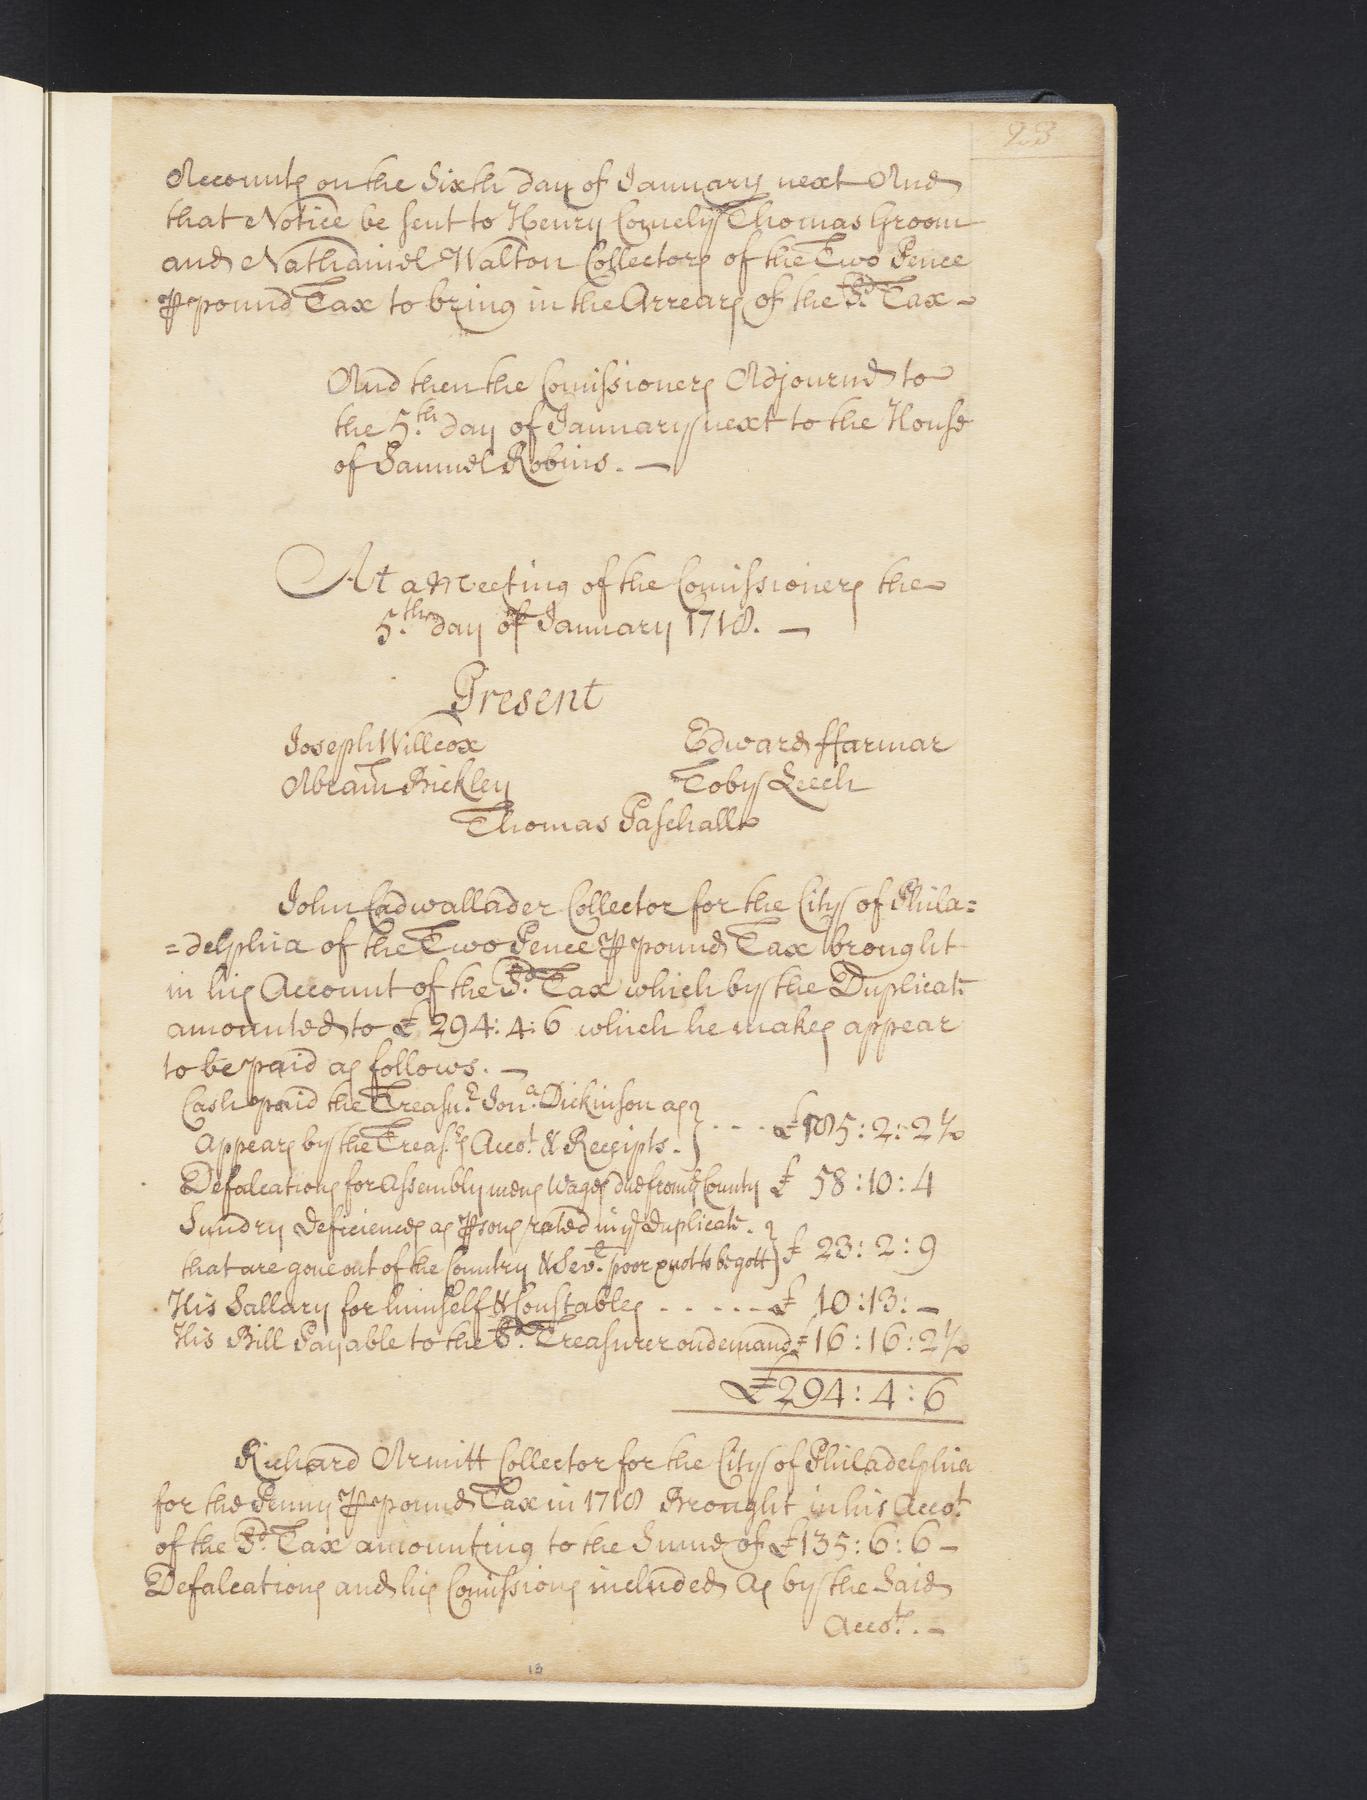 23
Accounts on the Sixth day of January next And
that Notice be sent to Henry Comely Thomas Groom
and Nathaniel Walton Collectors of the Two Pence
⅌ pound Tax to bring in the Arrears of the Sd. Tax -
And then the Comissioners Adjournd to
the 5.th day of January next to the House
of Samuel Robins. -
At a Meeting of the Comissioners the
5.th day of January 1718. -
Present
Joseph Willcox Edward ffarmar
Abram Bickley Toby Leech
Thomas Paschall
John Cadwallader Collector for the City of Phila=
=delphia of the Two Pence ⅌ pound Tax brought
in his Account of the Sd. Tax which by the Duplicate
amounted to £ 294: 4: 6 which he makes appear
to be paid as follows. -
Cash paid the Treasu.r Jon.a Dickinson as
appears by the Treas.rs Acco.t & Receipts. - - - - £185: 2: 2½
Defalcations for Assembly mens Wages due from ye County £ 58: 10: 4
Sundry deficiences as ⅌sons rated in ye Duplicate.
that are gone out of the Country & Sev.l poor & not to be gott £ 23: 2: 9
His Sallary for himself & Constables - - - - - £ 10: 13: -
His Bill Payable to the Sd. Treasurer on demand £ 16: 16: 2½
£294: 4: 6
Richard Armitt Collector for the City of Philadelphia
for the Penny ⅌ pound Tax in 1718 Brought in his Acco.t
of the Sd. Tax amounting to the Sume of £135: 6: 6 -
Defalcations and his Comissions included As by the Said
Acco.t. -
13